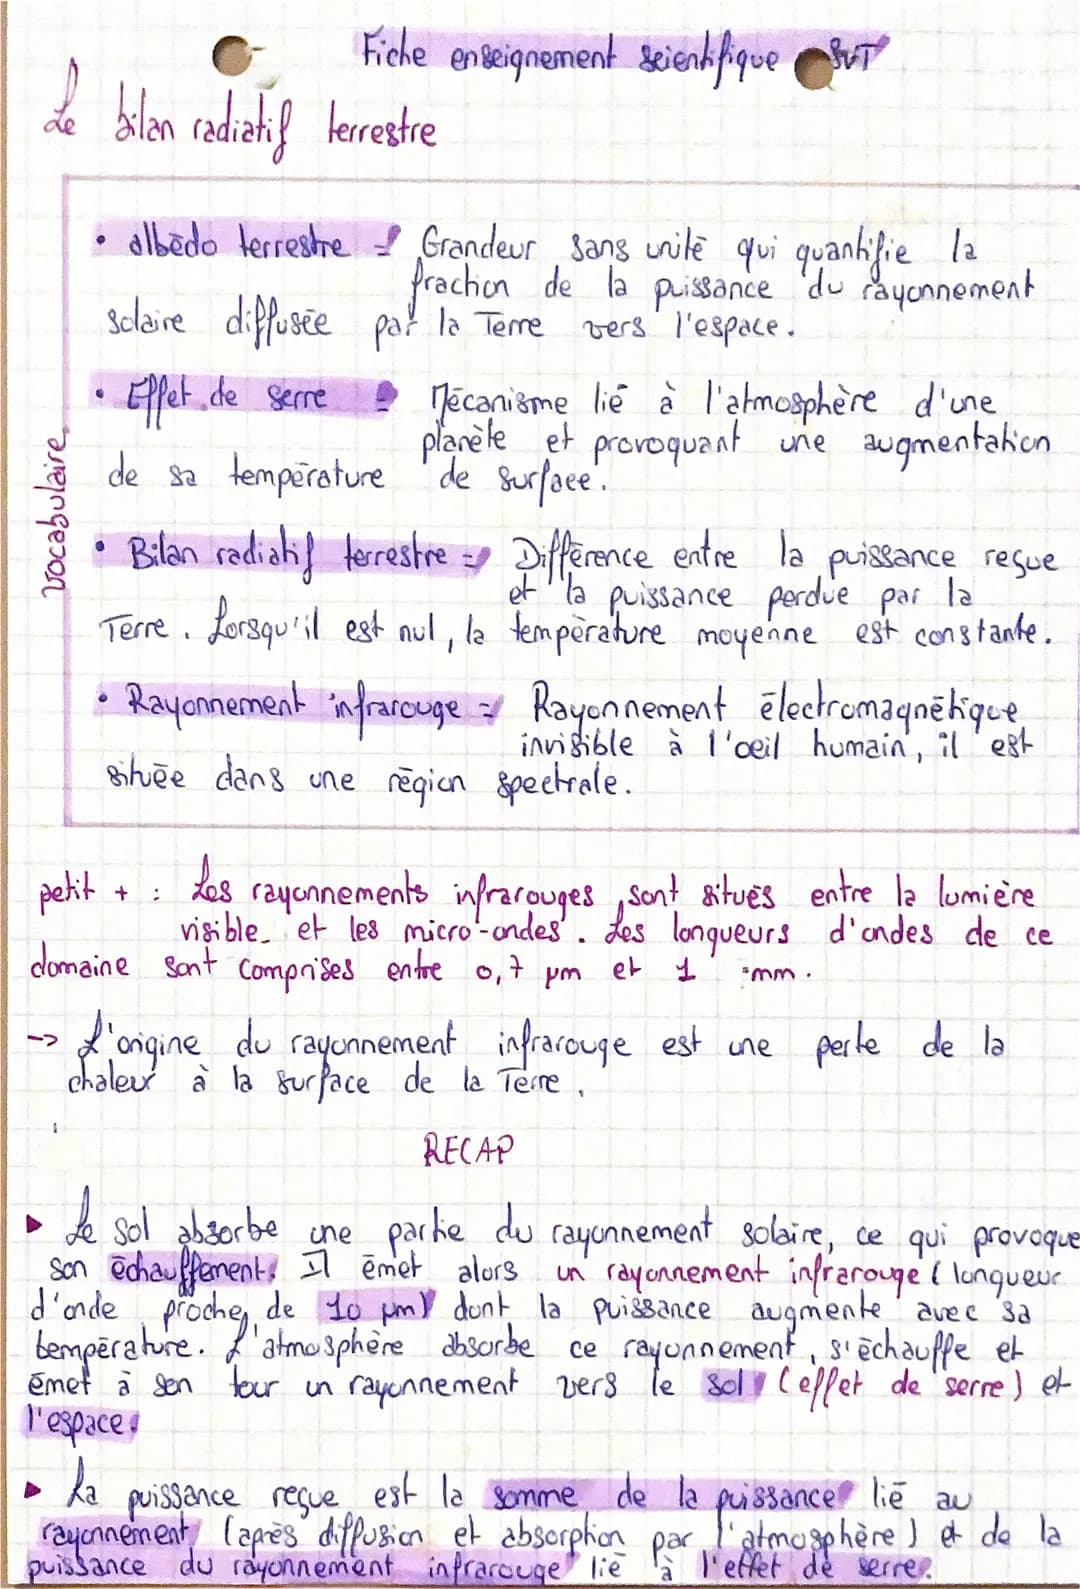 Fiche enseignement scientifique SVT
Le bilan radiatif terrestre
vocabulaire
• albédo terrestre = Grandeur sans unité qui quantifie la
fraction de la puissance du rayonnement
solaire diffusée par la Terre vers l'espace.
• Effet de serre = Mécanisme lié à l'atmosphère d'une
planète et provoquant une augmentation
de sa température de surface.
• Bilan radiatif terrestre = Différence entre la puissance reçue
et la puissance perdue par la
Terre. Lorsqu'il est nul, la température moyenne est constante.
• Rayonnement infrarouge = Rayonnement électromagnétique
invisible à l'oeil humain, il est
située dans une région spectrale.
petit + : Les rayonnements infrarouges sont situés entre la lumière
visible et les micro-ondes. Les longueurs d'ondes de ce
domaine sont comprises entre 0,7 µm et 1 mm.
-> L'origine du rayonnement infrarouge est une perte de la
chaleur à la surface de la Terre.
RECAP
▶ Le sol absorbe une partie du rayonnement solaire, ce qui provoque
son échauffement. Il émet alors un rayonnement infrarouge (longueur
d'onde proche de 10 µm) dont la puissance augmente avec sa
température. L'atmosphère absorbe ce rayonnement, s'échauffe et
émet à son tour un rayonnement vers le sol (effet de serre) et
l'espace.
▶ La puissance reçue est la somme de la puissance lié au
rayonnement (après diffusion et absorption par l'atmosphère) et de la
puissance du rayonnement infrarouge lié à l'effet de serre.